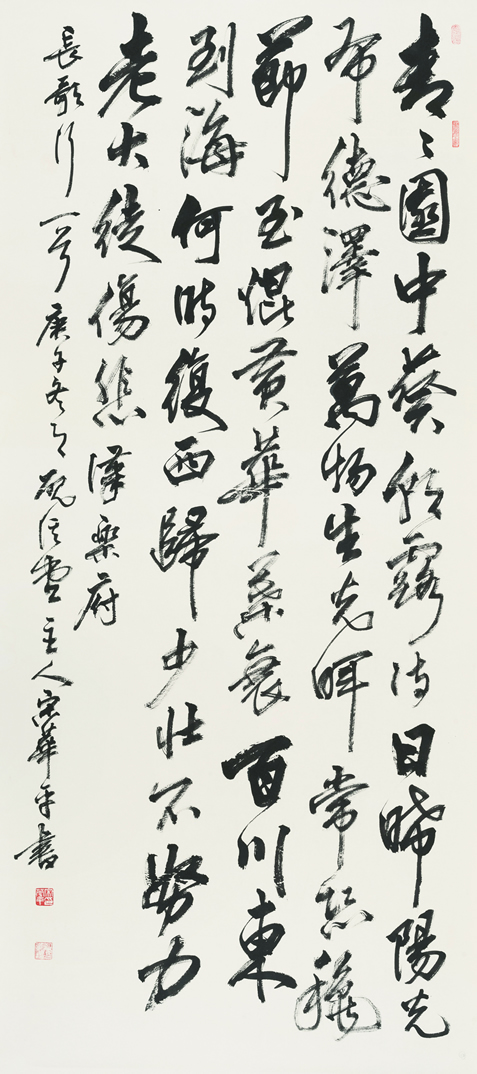 青〻園中葵朝露待日晞陽光
布德澤萬物生光暉常恐穐
節至焜黃華葉衰百川東
到海何時復西歸少壯不努力
老大徒傷悲漢樂府
長歌行一首庚子冬月主人宋華平書